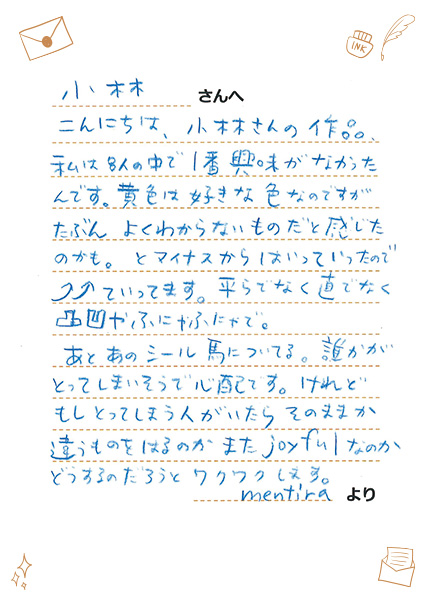 INK
小林 さんへ
こんにちは、小林さんの作品、
私は8人の中で1番興味がなかった
んです。黄色は好きな色なのですが
たぶん よくわからないものだと感じた
のかも。とマイナスからはいっていったので
⤴⤴ていってます。平らでなく直でなく
凸凹やふにゃふにゃで。
あとあのシール馬についてる。誰かが
とってしまいそうで心配です。けれど
もしとってしまう人がいたらそのままか
違うものをはるのかまたjoyfulなのか
どうするのだろうとワクワクします。
mentira より